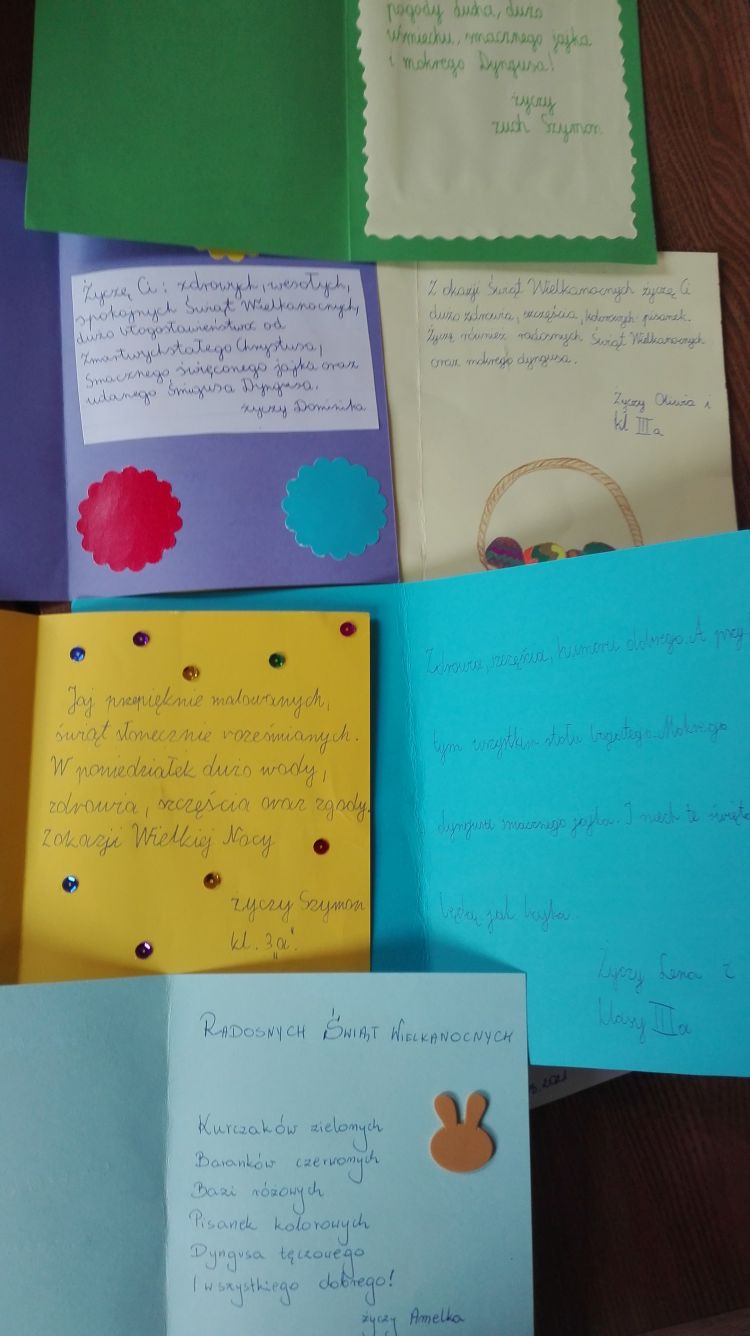 pogody ducha, dużo
uśmiechu, smacznego jajka
i mokrego Dyngusa!
życzy
zuch Szymon
Życzę Ci: zdrowych, wesołych,
spokojnych Świąt Wielkanocnych,
dużo błogosławieństw od
Zmartwychstałego Chrystusa,
Smacznego święconego jajka oraz
udanego Śmigusa Dyngusa.
życzy Dominika
Z okazji Świąt Wielkanocnych życzę Ci
dużo zdrowia, szczęścia, kolorowych pisanek.
Życzę również radosnych Świąt Wielkanocnych
oraz mokrego dyngusa.
Życzy Oliwia i
kl IIIa
Zdrowia, szczęścia, humoru dobrego. A przy
tym wszystkim stołu bogatego. Mokrego
dyngusa smacznego jajka. I niech te święta
będą jak bajka.
Życzy Lena z
klasy IIIa
Jaj przepięknie malowanych,
świąt słonecznie roześmianych.
W poniedziałek dużo wody,
zdrowia, szczęścia oraz zgody.
Z okazji Wielkiej Nocy
życzy Szymon
kl. 3„a".
2021
RADOSNYCH ŚWIĄT WIELKANOCNYCH
Kurczaków zielonych
Baranków czerwonych
Bazi różowych
Pisanek kolorowych
Dyngusa tęczowego
I wszystkiego dobrego!
życzy Amelka